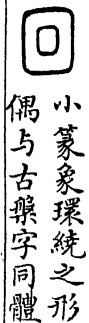 回
小篆象環繞之形
偶与古槃字同體